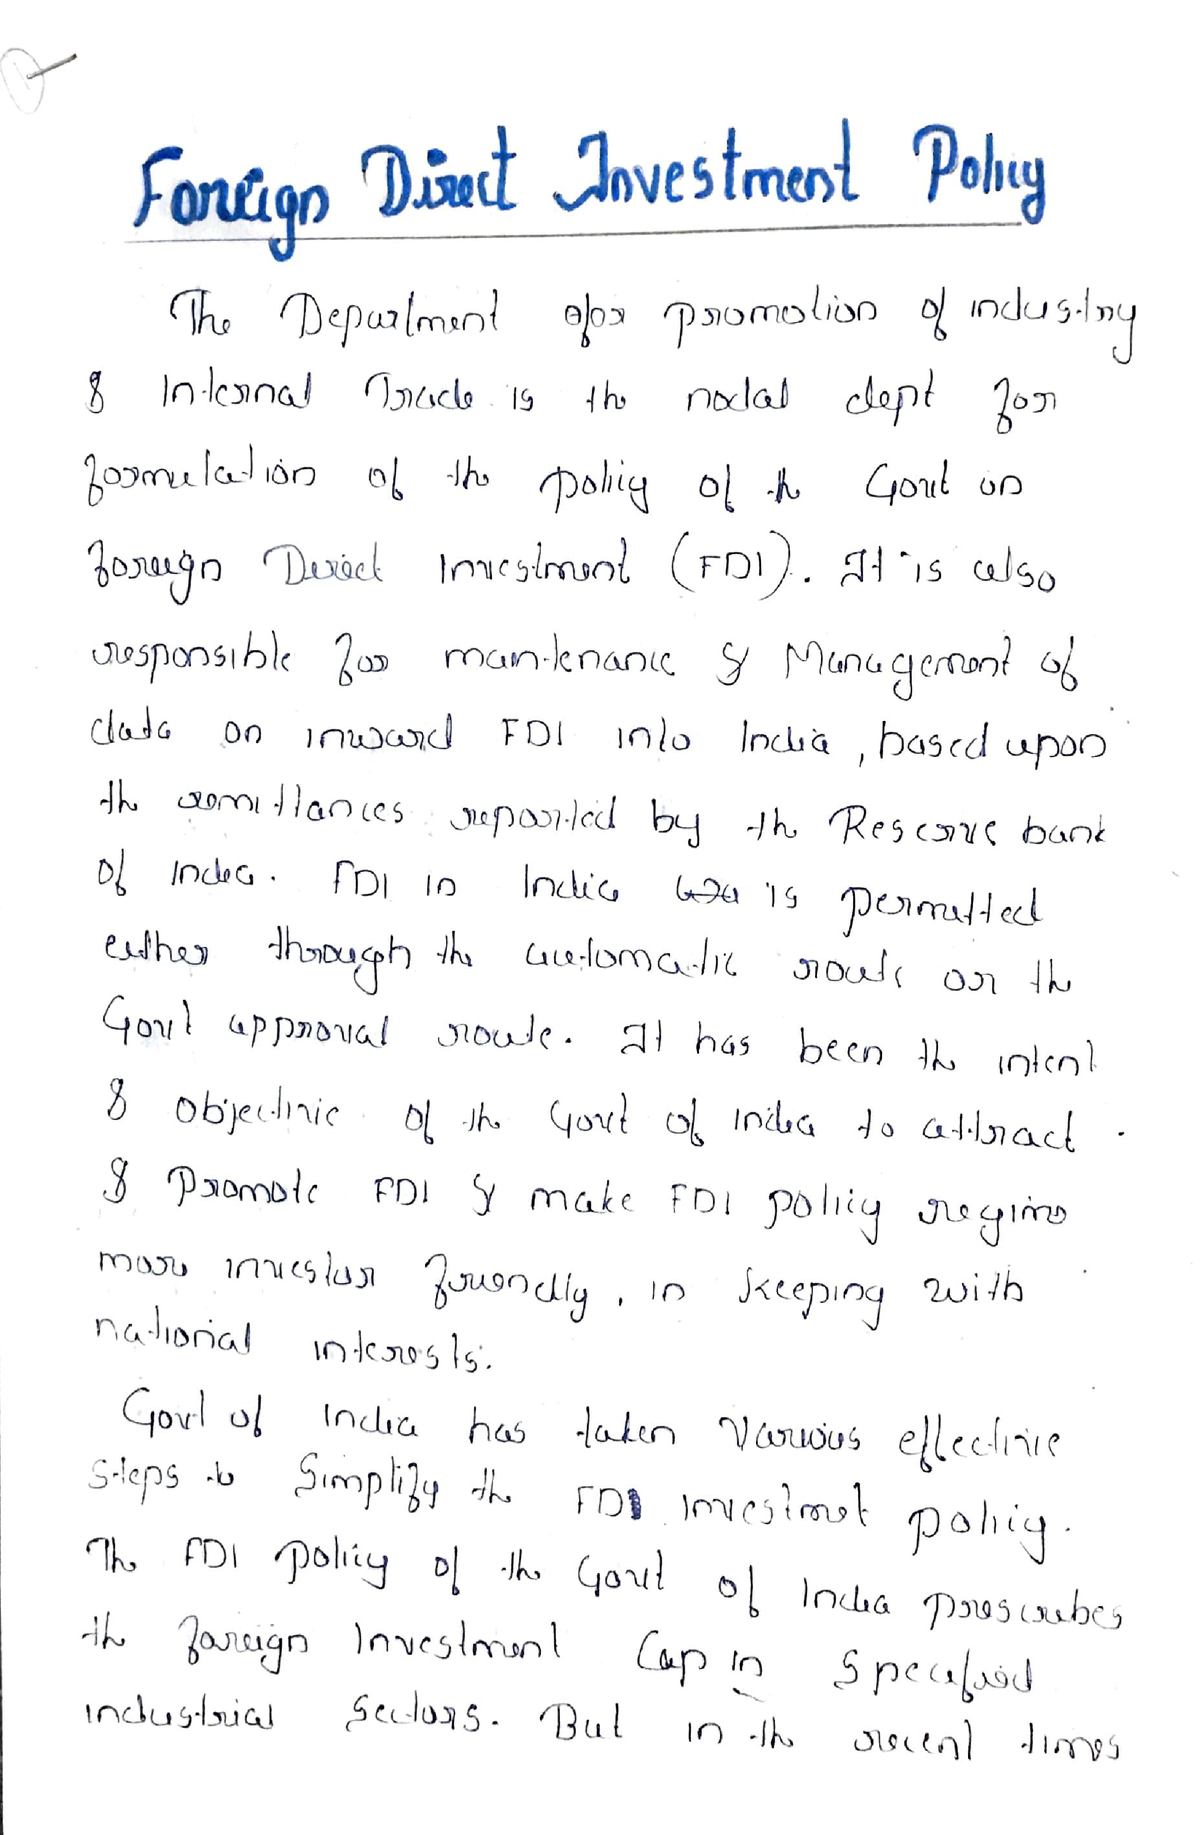 Foreign Direct Investment Policy
The Department for promotion of industry
& Internal Trade is the nodal dept for
formulation of the policy of the Govt on
foreign Direct Investment (FDI). It is also
responsible for maintenance & Management of
data on inward FDI into India, based upon
the remittances reported by the Reserve bank
of India. FDI in India is permitted
either through the automatic route or the
Govt approval route. It has been the intent
& objective of the Govt of India to attract
& Promote FDI & make FDI policy regime
more investor friendly, in keeping with
national interests.
Govt of India has taken various effective
steps to Simplify the FDI investmet policy.
The FDI policy of the Govt of India prescribes
the foreign Investment Cap in Specified
industrial Sectors. But in the recent times